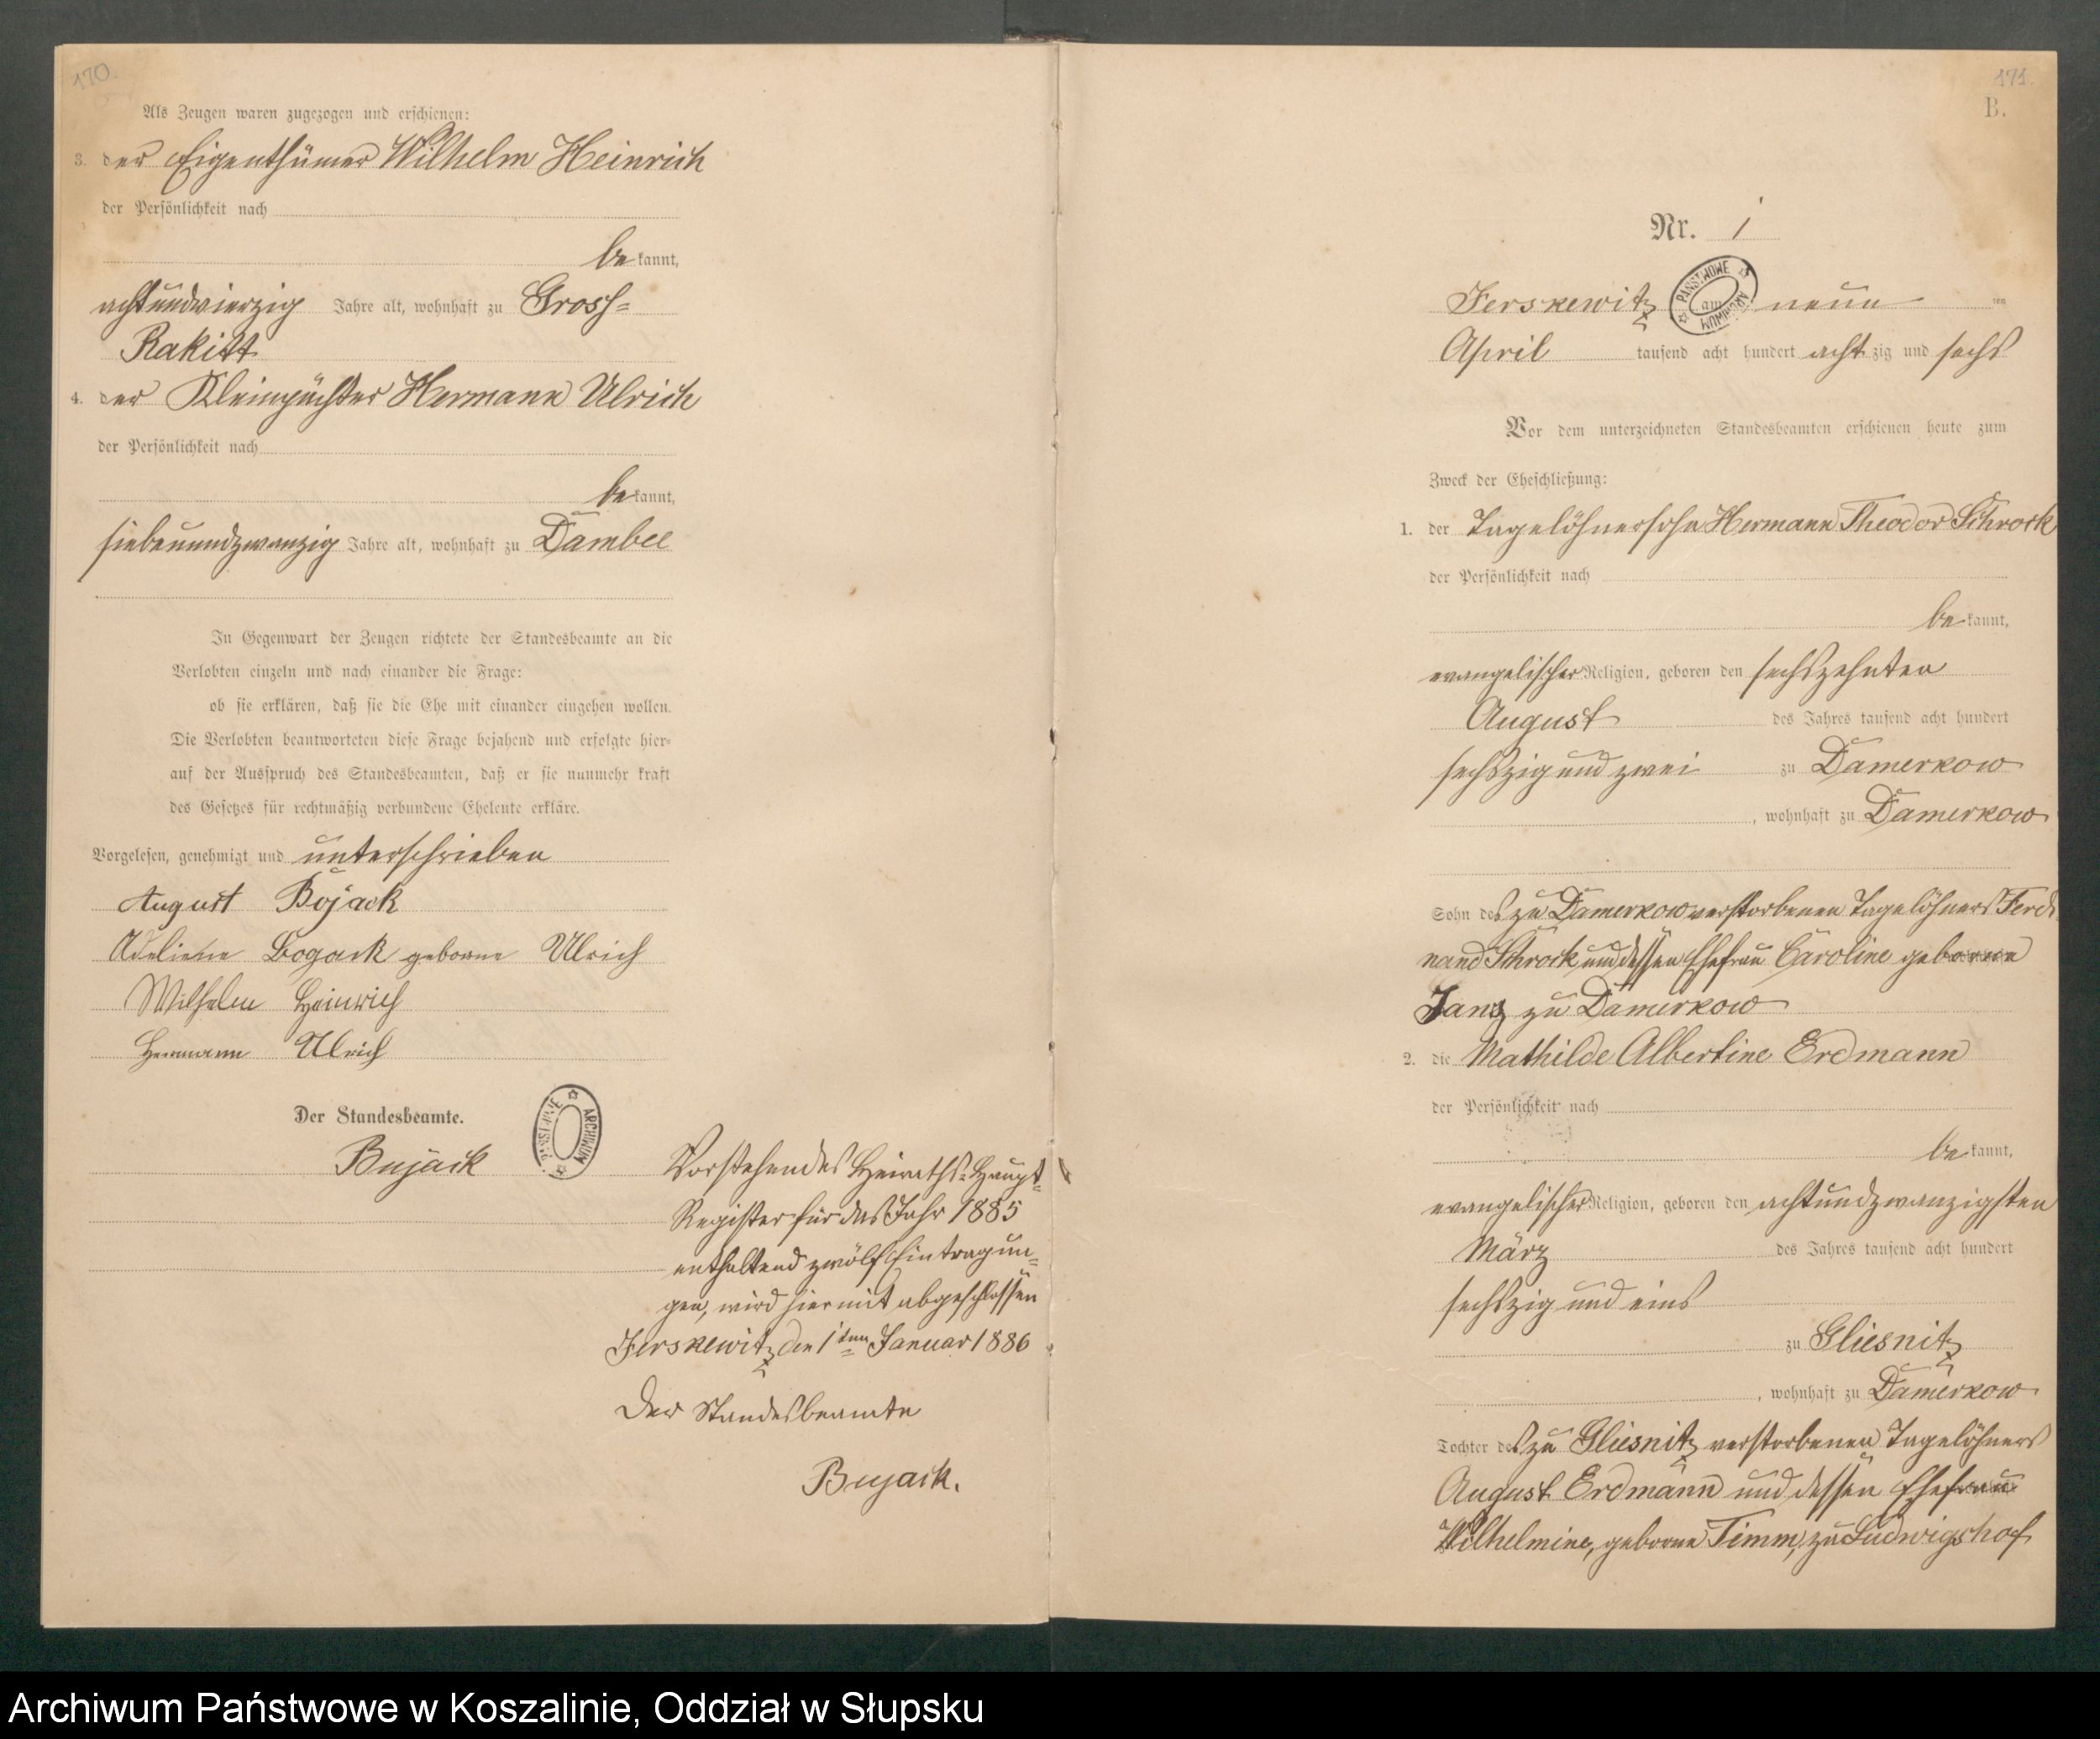 170.
Als Zeugen waren zugezogen und erschienen:
3. der Eigenthümer Wilhelm Heinrich
der Persönlichkeit nach
be kannt,
achtundvierzig Jahre alt, wohnhaft zu Gross-
Rakitt
4. der Kleinpächter Hermann Ulrich
der Persönlichkeit nach
be kannt,
siebenundzwanzig Jahre alt, wohnhaft zu Dambee
In Gegenwart der Zeugen richtete der Standesbeamte an die
Verlobten einzeln und nach einander die Frage:
ob sie erklären, daß sie die Ehe mit einander eingehen wollen.
Die Verlobten beantworteten diese Frage bejahend und erfolgte hier-
auf der Ausspruch des Standesbeamten, daß er sie nunmehr kraft
des Gesetzes für rechtmäßig verbundene Eheleute erkläre.
Vorgelesen, genehmigt und unterschrieben
August Bojack
Bogack geborne Ulrich
Wilhelm Heinrich
Hermann Ulrich
Der Standesbeamte.
Bujack
ARCHIWUM
Vorstehendes Heiraths-Haupt-
Register für das Jahr 1885
enthaltend zwölf Eintragun-
gen, wird hiermit abgeschlossen
Jerskewitz, den 1ten Januar 1886
Der Standesbeamte
Bujack.
171.
B.
Nr. 1
PAŃSTWOWE ARCHIWUM
Jerskewitz am neun ten
April tausend acht hundert acht zig und sechs
Vor dem unterzeichneten Standesbeamten erschienen heute zum
Zweck der Eheschließung:
1. der Tagelöhnersohn Hermann Theodor Schrock
der Persönlichkeit nach
be kannt,
evangelischer Religion, geboren den sechszehnten
August des Jahres tausend acht hundert
sechszig und zwei zu Damerkow
, wohnhaft zu Damerkow
Sohn des zu Damerkow verstorbenen Tagelöhners Ferdi
nand Schrock und dessen Ehefrau Caroline geborne
Janz zu Damerkow
2. die Mathilde Albertine Erdmann
der Persönlichkeit nach
be kannt,
evangelischer Religion, geboren den achtundzwanzigsten
März des Jahres tausend acht hundert
sechszig und eins
zu Gliesnitz
, wohnhaft zu Damerkow
Tochter des zu Gliesnitz verstorbenen Tagelöhners
August Erdmann und dessen Ehefrau
Wilhelmine, geborne Timm, zu Ludwigshof
Archiwum Państwowe w Koszalinie, Oddział w Słupsku